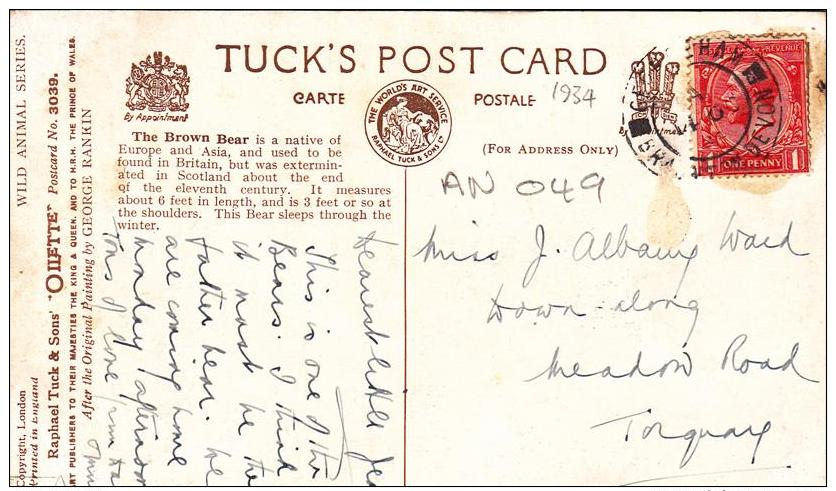 TUCK'S POST CARD
CARTE POSTALE
1934
By Appointment
THE WORLD'S ART SERVICE
RAPHAEL TUCK & SONS LTD
(FOR ADDRESS ONLY)
ONE PENNY
REVENUE
DEVON
The Brown Bear is a native of
Europe and Asia, and used to be
found in Britain, but was extermin-
ated in Scotland about the end
of the eleventh century. It measures
about 6 feet in length, and is 3 feet or so at
the shoulders. This Bear sleeps through the
winter.
WILD ANIMAL SERIES.
Raphael Tuck & Sons' "OILETTE" Postcard No. 3039.
ART PUBLISHERS TO THEIR MAJESTIES THE KING & QUEEN, AND TO H.R.H. THE PRINCE OF WALES.
After the Original Painting by GEORGE RANKIN
Copyright, London
Printed in England
AN 049
Miss J. Albany Ward
Down-along
Meadow Road
Torquay.
Dearest little
This is one of the
Bears. I think
it must be the
father bear. We
are coming home
Monday afternoon
Tons of love from